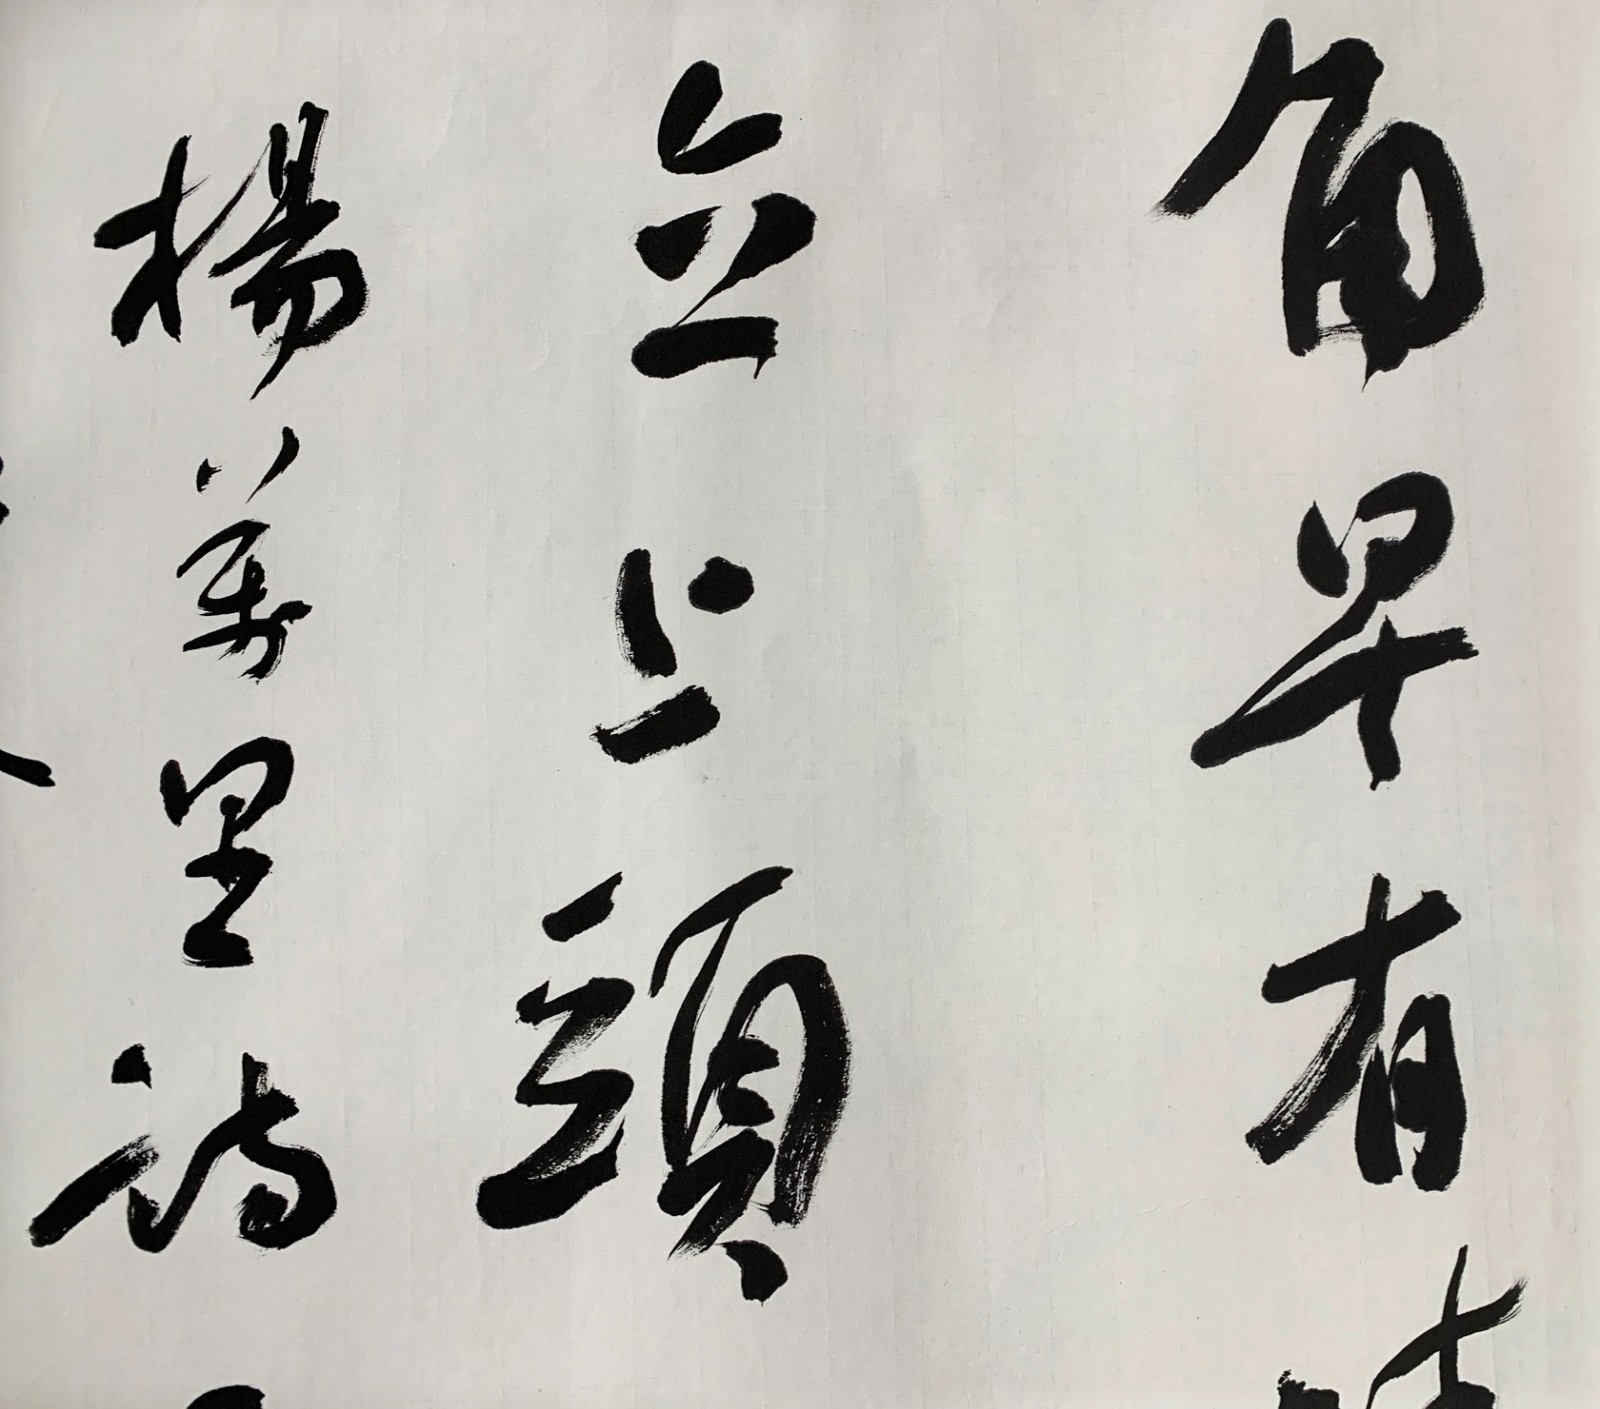 角早有
立上頭
楊萬里詩